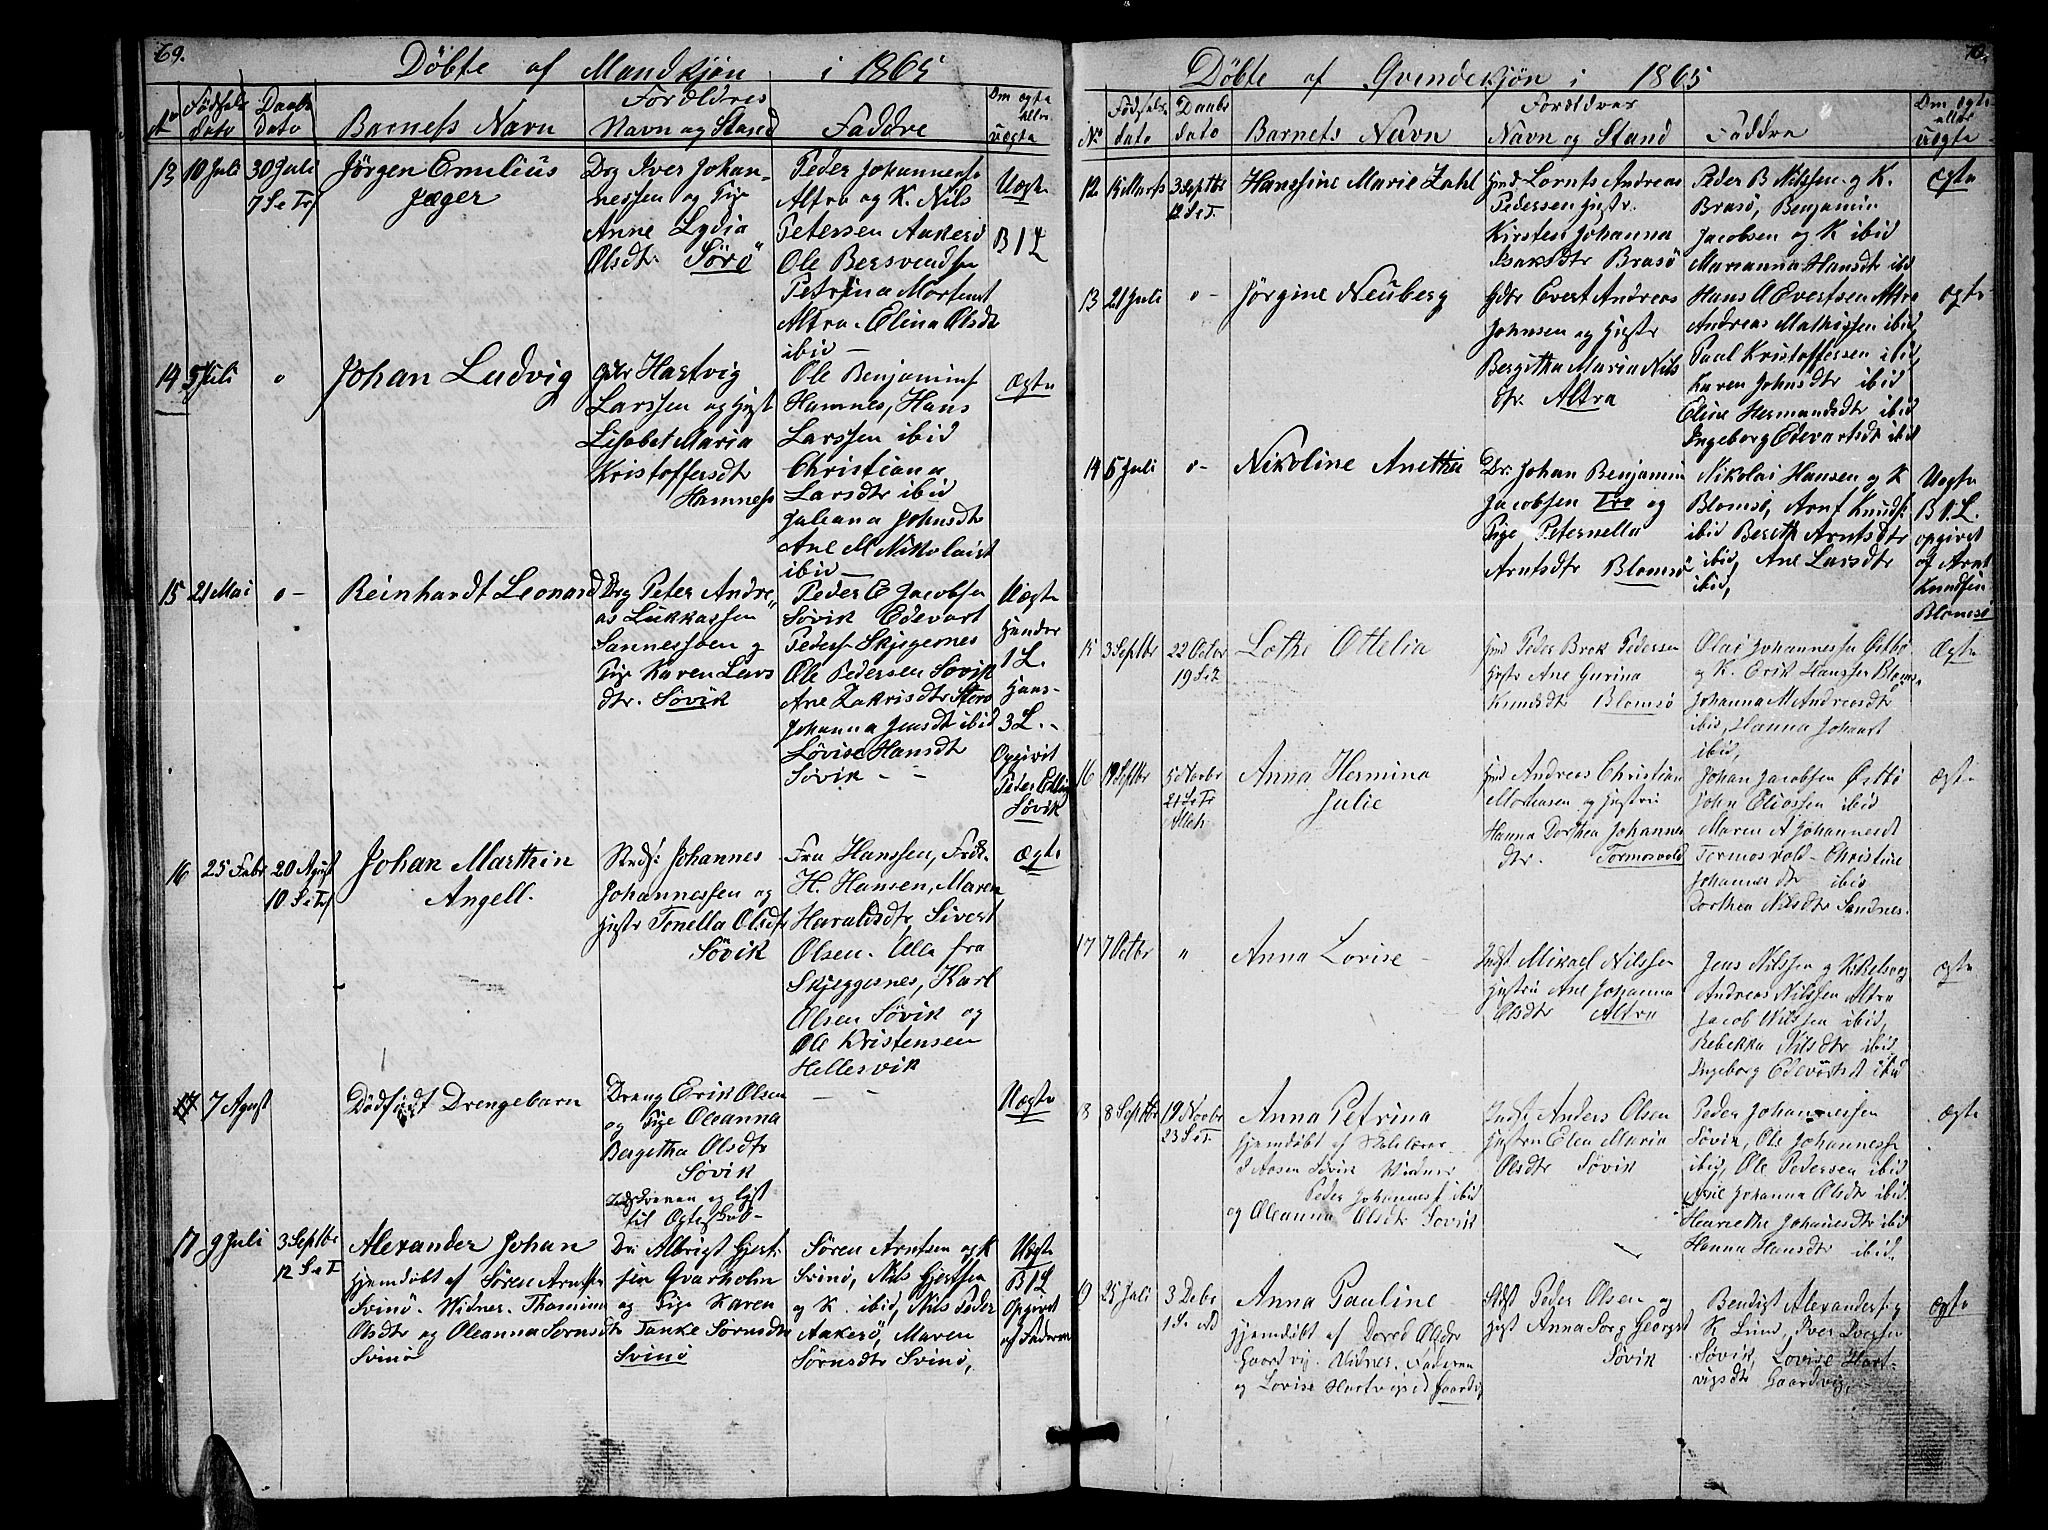 69.
Döbte af Mandkjön i 1865
No
Fødsels dato
Daabs dato
Barnets Navn
Forældres Navn og Stand
Faddre
Om ægte eller uægte
13 10 Juli 30 Juli Jörgen Emilius
7 S e Tr Jæger
Drg Iver Johan-
nessen og Pige
Anne Lydia
Olsdt. Sörö
Peder Johannens
Altra og K. Nils
Petersen Aakerö
Ole Bersvends
Petrina Mortensd
Altra. Elina Olsdt
ibid —
Uægte
B 1 L
14 5 Juli " Johan Ludvig
Gdbr Hartvig
Larssen og Hust
Lisabet Maria
Kristoffersdt
Hamnes
Ole Benjamins
Hamnes, Hans
Larssen ibid
Christiana
Larsdtr ibid
Juliana Johnsdtr
Ane M Nikolaisd
ibid —
Ægte
15 21 Mai " - Reinhardt Leonard
Drg Peter Andre-
as Lukkassen
Sannessøen og
Pige Karen Lars
dtr. Søvik
Peder E Jacobsen
Søvik Edevart
Peders Skjegernes
Ole Pedersen Søvik
Ane Zakrisdtr Stero
Johanna Jensdt ibid
Lövise Hansdtr
Søvik - -
Uægte
Hendes
1 L.
Hans-
3 L. -
Opgivit
Peder Elling
Søvik
16 25 Febr 20 Agust Johan Marthin
10 S e Tr Angell.
Johannes
Johannessen og
Hustr Tonella Olsdtr
Søvik
Fru Hanssen, Frdr.
H. Hansen, Maren
Haraldsdtr, Sivert
Olsen. Alle fra
Skjeggesnes, Karl
Olsen Søvik og
Ole Kristensen
Hellesvik
Ægte
17 7 Agust Dödfödt Drengebarn
Dreng Erik Olsen
og Pige Oleanna
Bergitha Olsdtr
Søvik
til Ægteskab -
— —
Uægte
17 9 Juli 3 Septbr Alexander Johan
12 S e T Hjemdöbt af Sören Arntsen
Svinö. Widner. Thomine
Olsdtr og Oleanna Sørnsdtr
Svinö
Dr. Albrigt Gjert-
sen Qvarholm
og Pige Karen
Tanke Sørnsdtr
Svinö
Søren Arntsen og K
Svinö, Nils Gjertsen
og K. ibid, Nils Peder
Aakerö, Maren
Sørnsdtr Svinö,
Uægte
B 1 L
Opgivet
af Faderen
70.
Döbte af Qvendekjön i 1865
No
Fødsels- dato
Daabs dato
Barnets Navn
Forældres Navn og Stand
Faddre
Om ægte eller uægte
12 15 Marts 3 Septbr Hansine Marie Zahl
12 S e T.
Hmd Lornts Andreas
Pedersen Hustr.
Kirsten Johanna
Isaksdtr Brasö
Peder B Nilssen og K.
Brasö, Benjamin
Jacobsen og K ibid
Marianna Hansdtr ibid
Ægte
13 21 Juli " - Jørgine Neuberg
Gdbr Evert Andreas
Johnsen og Hustr
Bergitha Maria Nils
dtr. Altra
Hans A Evertsen Altra
Andreas Mathissen ibid
Paal Kristoffersen ibid,
Karen Johnsdtr ibid
Eline Hermandsdtr ibid
Ingeborg Edevartsdt ibid
Ægte
14 5 Juli " - Nikoline Anetha
Dr. Johan Benjamin
Jacobsen Tro og
Pige Peternella
Arntsdtr Blomsö
Nikolai Hansen og K
Blomsö, Arnt Knuds.
ibid Bereth Arntsdtr
ibid, Ane Larsdtr
ibid,
Uægte
B 1 L.
opgivet
af Arnt
Knudsen
Blomsö
15 3 Septbr 22 Octbr Lothe Ottelia
19 S e T
Hmd Peder Brok Pedersen
Hustr Ane Gurina
Knudsdt Blomsö
Olai Johannessen Østbö
og K. Erik Hanssen Bloms.
Johanna M Andreasdtr
ibid, Hanna Johansd
ibid,
Ægte
16 19 Septbr 5 Novbr Anna Hermina
21 S e Tr Julie
Hmd Andreas Christian
og Hustru
Hanna Dorthea Johannes
dtr. Tormosvold
Johan Jacobsen Østbö
John Eliassen ibid
Maren A Johannesdt
Tormosvold - Christine
Johannesdt ibid
Dorthea Nilsdtr Sandnes.
Ægte
17 7 Octbr " Anna Lovise —
Indst Mikael Nilssen
Hustru Ane Johanna
Olsdtr Altra
Jens Nilssen og K
Andreas Nilssen Altra
Jacob Nilssen ibid,
Rebekka Nilsdtr ibid,
Ingeborg Edevartsdt ibid
Ægte
18 8 Septbr 19 Novbr Anna Petrina
23 S e T. Hjemdöbt af Skolelærer
Aasen Søvik Widner
Peder Johanness ibid
og Oleanna Olsdtr Søvik
Indst Anders Olsen
Hustru Elen Maria
Olsdtr Søvik
Peder Johannessen
Søvik, Ole Johanness
ibid, Ole Pedersen ibid
Johanna Olsdtr ibid.
Henriethe Johansdtr ibid
Hanna Hansdtr ibid.
Ægte
19 25 Juli 3 Debr Anna Pauline
1 S e Ad Hjemdöbt af Dored Olsdtr
Gaardvig. Widner. Faderen
og Lovise Hartvigsd Gaardvig
Peder Olsen og
Hust Anna Georgsd
Søvik
Bendigt Alexanders og
K Lund, Iver Iversen
Søvik, Lovise Hart-
vigsdtr Gaardvig.
Ægte